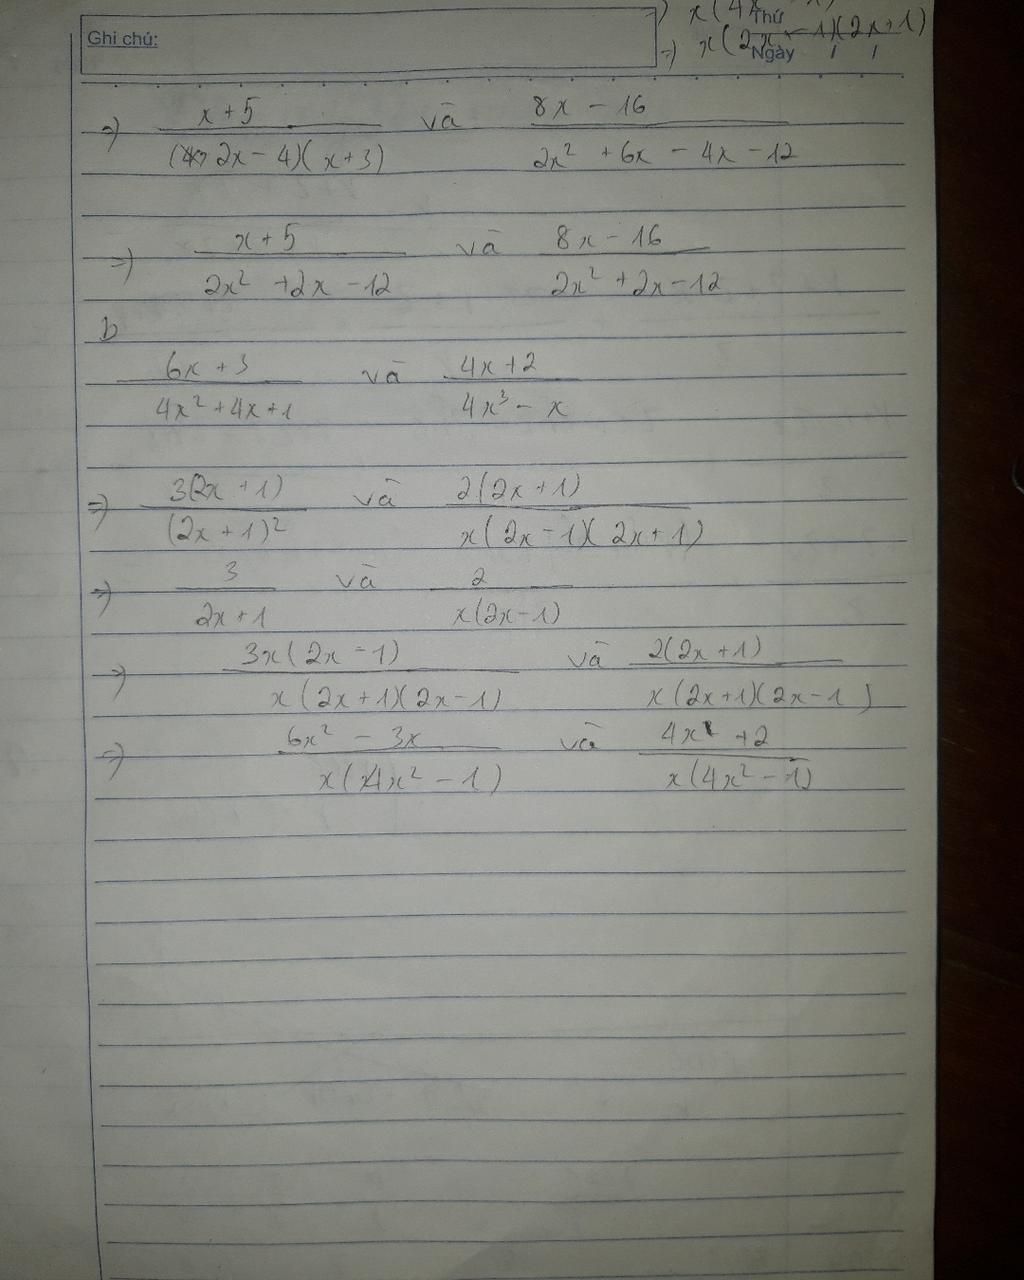 x(4x
Thứ
Ghi chú:
=) x(2x - 1)(2x+1)
Ngày / /
=) x+5 / (2x-4)(x+3) và 8x - 16 / 2x² + 6x - 4x - 12
=) x+5 / 2x² +2x -12 và 8x - 16 / 2x² +2x-12
b
6x +3 / 4x² +4x+1 và 4x+2 / 4x³ - x
=) 3(2x +1) / (2x +1)² và 2(2x+1) / x(2x-1)(2x+1)
=) 3 / 2x+1 và 2 / x(2x-1)
=) 3x(2x-1) / x(2x+1)(2x-1) và 2(2x+1) / x(2x+1)(2x-1)
=) 6x² - 3x / x(4x² - 1) và 4x +2 / x(4x² - 1)